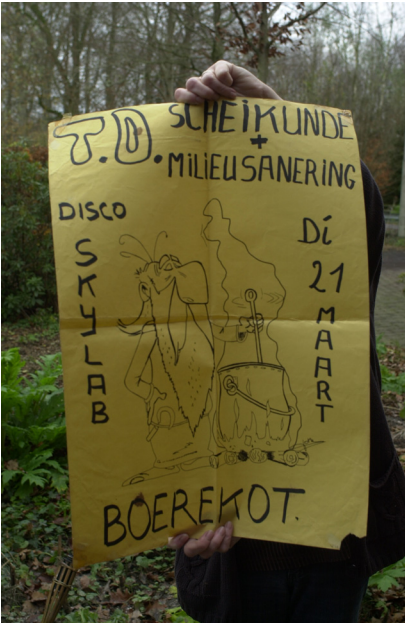 T.D. SCHEIKUNDE
+
MILIEUSANERING
DISCO
SKYLAB
Di
21
MAART
BOEREKOT.